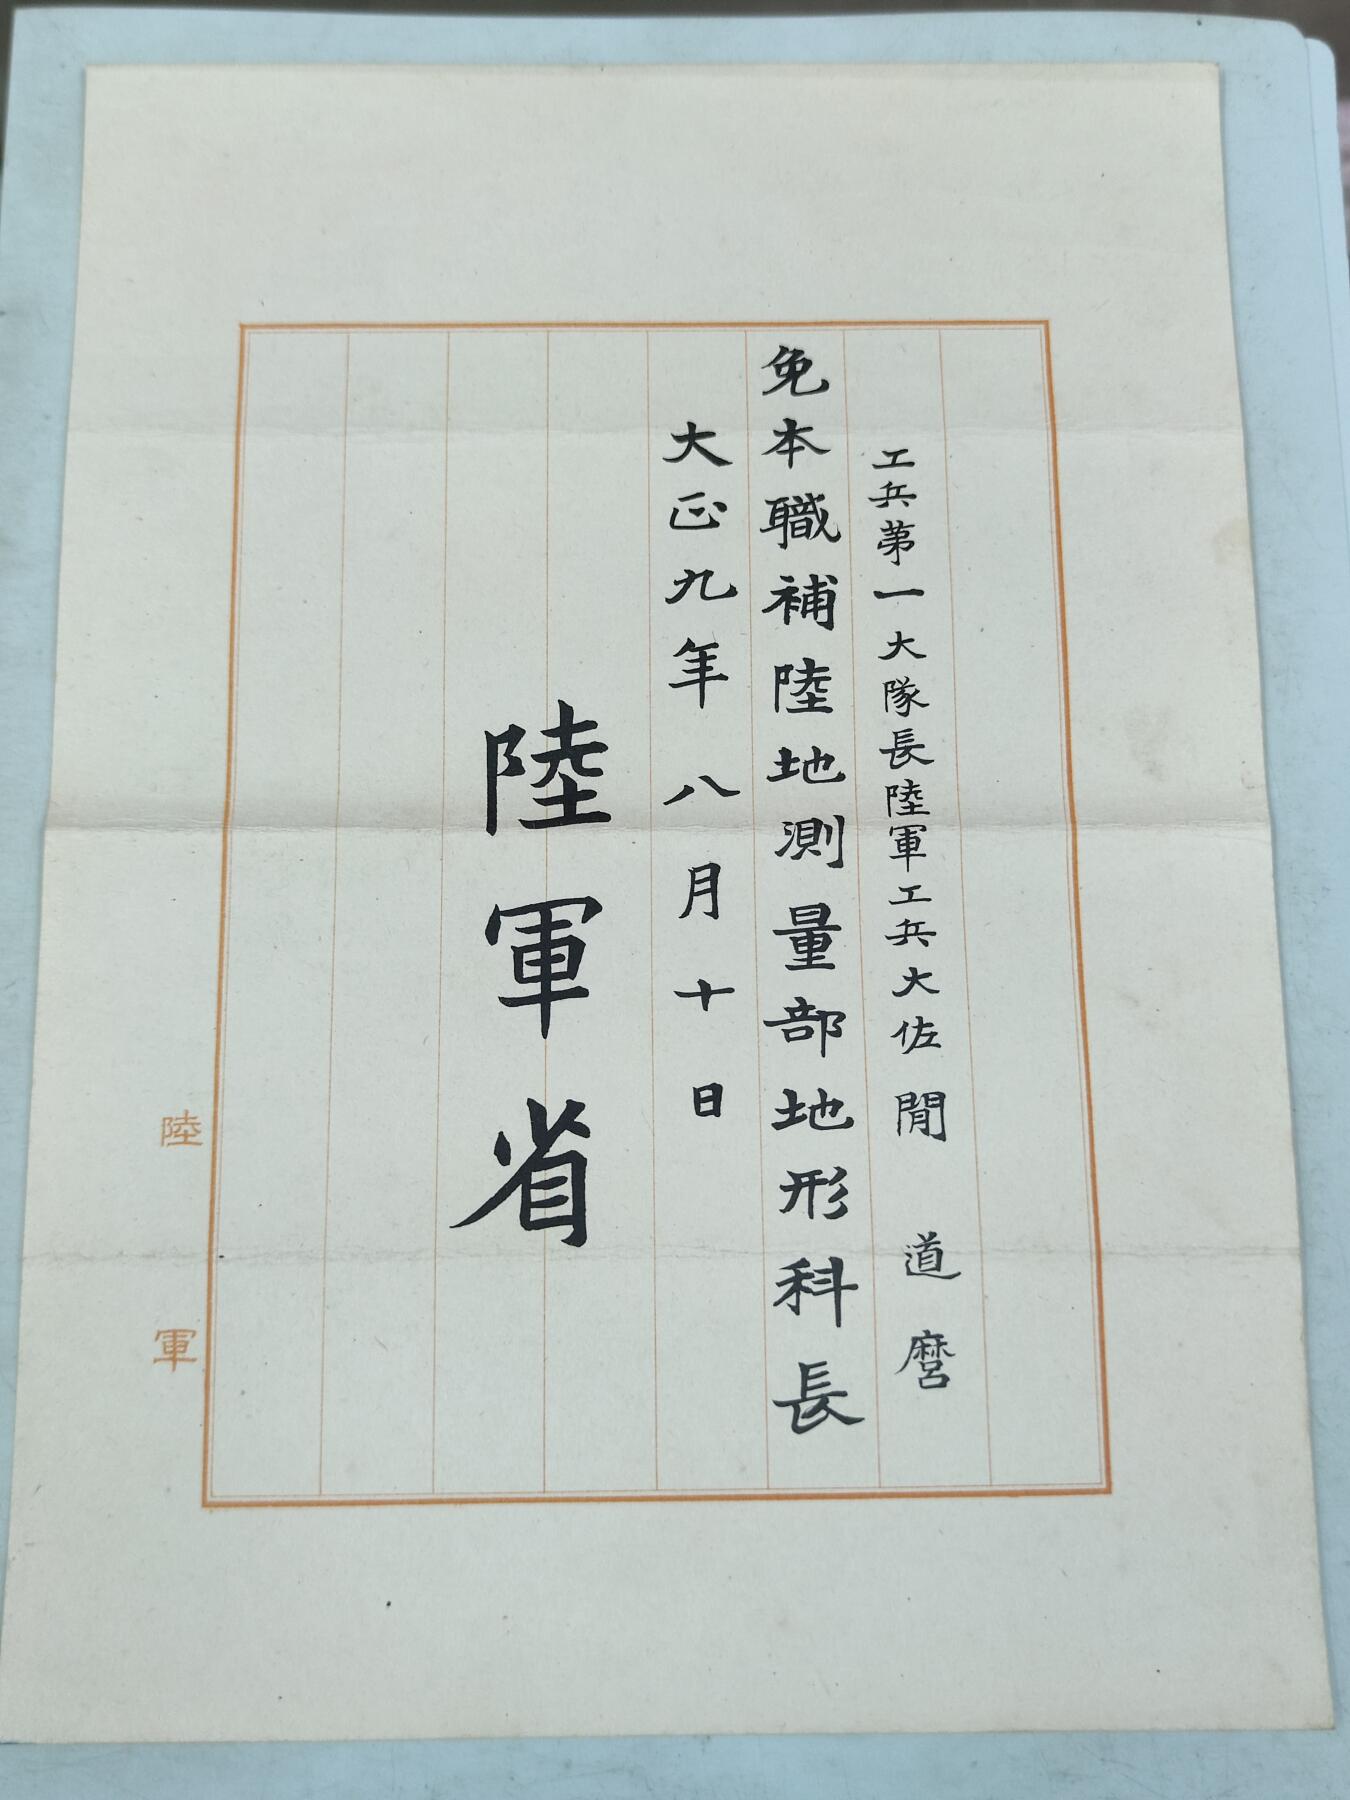 工兵第一大隊長陸軍工兵大佐 閒 道麿
免本職補陸地測量部地形科長
大正九年八月十日
陸軍省
陸軍